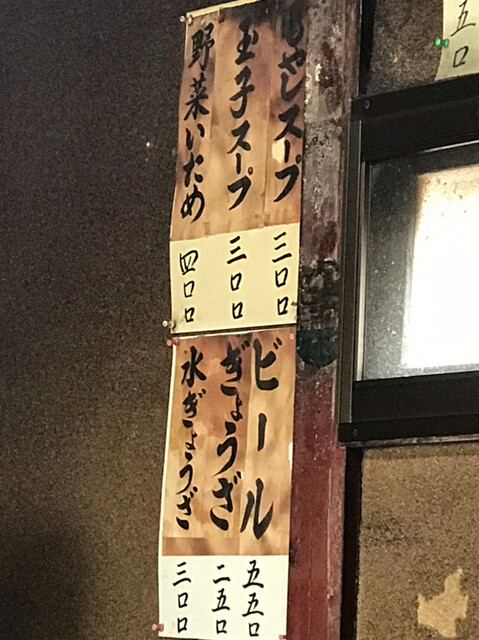 もやしスープ 三〇〇
玉子スープ 三〇〇
野菜いため 四〇〇
ビール 五五〇
ぎょうざ 二五〇
水ぎょうざ 三〇〇
五〇